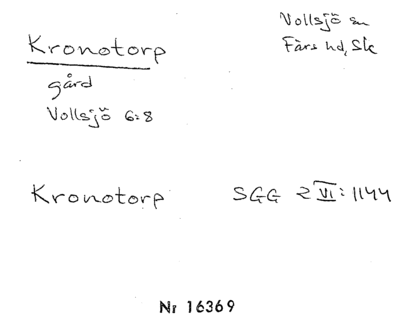 Vollsjö sn
Färs hd, Sk
Kronotorp
gård
Vollsjö 6:8
Kronotorp SGG 2 VI: 1144
Nr 16369